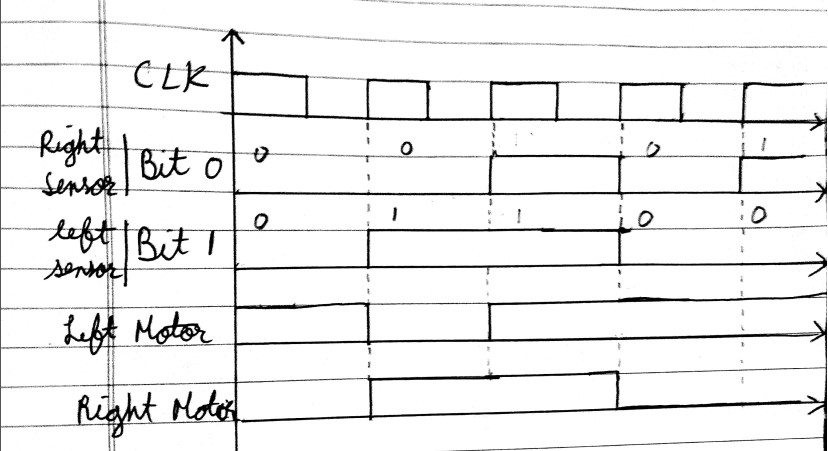 CLK
Right sensor | Bit 0 0 0 1 0 1
left sensor | Bit 1 0 1 1 0 0
Left Motor
Right Motor